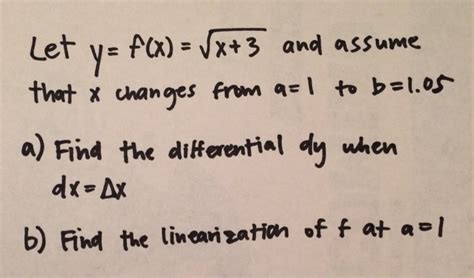 Let y = f(x) = √x+3 and assume
that x changes from a=1 to b=1.05
a) Find the differential dy when
dx = Δx
b) Find the linearization of f at a=1